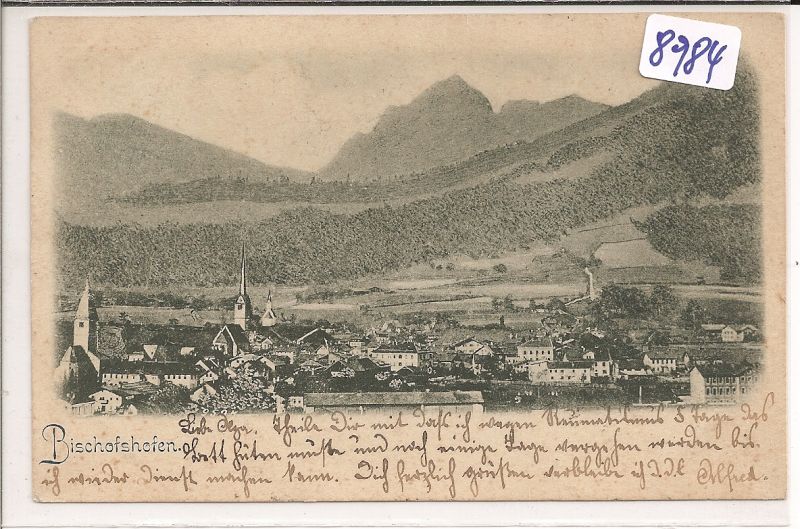 8784
Liebe Olga. Theile Dir mit daß ich wegen Reumatismus 5 Tage das
Bischofshofen.
Bett hüten mußte und noch einige Tage vergehen werden bis
ich wieder Dienst machen kann. Dich herzlich grüßend verbleibe ich d.d.l. Alfred.